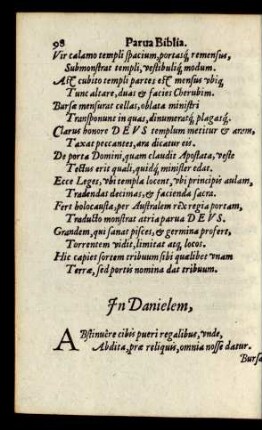 98 Parua Biblia.
Vir calamo templi spacium, portasq́; remensus,
Submonstrat templi, vestibuliq́; modum.
Ast cubito templi partes est mensus vbiq́;
Tunc altare, duas & facies Cherubim.
Bursæ mensurat cellas, oblata ministri
Transponunt in quas, dinumeratq́; plagasq́;
Clarus honore DEVS templum metitur & aram,
Taxat peccantes, ara dicatur eis.
De porta Domini, quam claudit Apostata, veste
Tectus erit quali, quidq́; minister edat.
Ecce Leges, vbi templa locent, vbi principis aulam,
Tradendas decimas, & facienda sacra.
Fert holocausta, per Australem rex regia portam,
Traducto monstrat atria parua DEVS.
Grandem, qui sanat pisces, & germina profert,
Torrentem vidit, limitat atq́; locos.
Hic capies sortem tribuum sibi quælibet vnam
Terræ, sed portis nomina dat tribuum.
In Danielem,
ABstinuêre cibis pueri regalibus, vnde,
Abdita, præ reliquis, omnia nosse datur.
Bursa